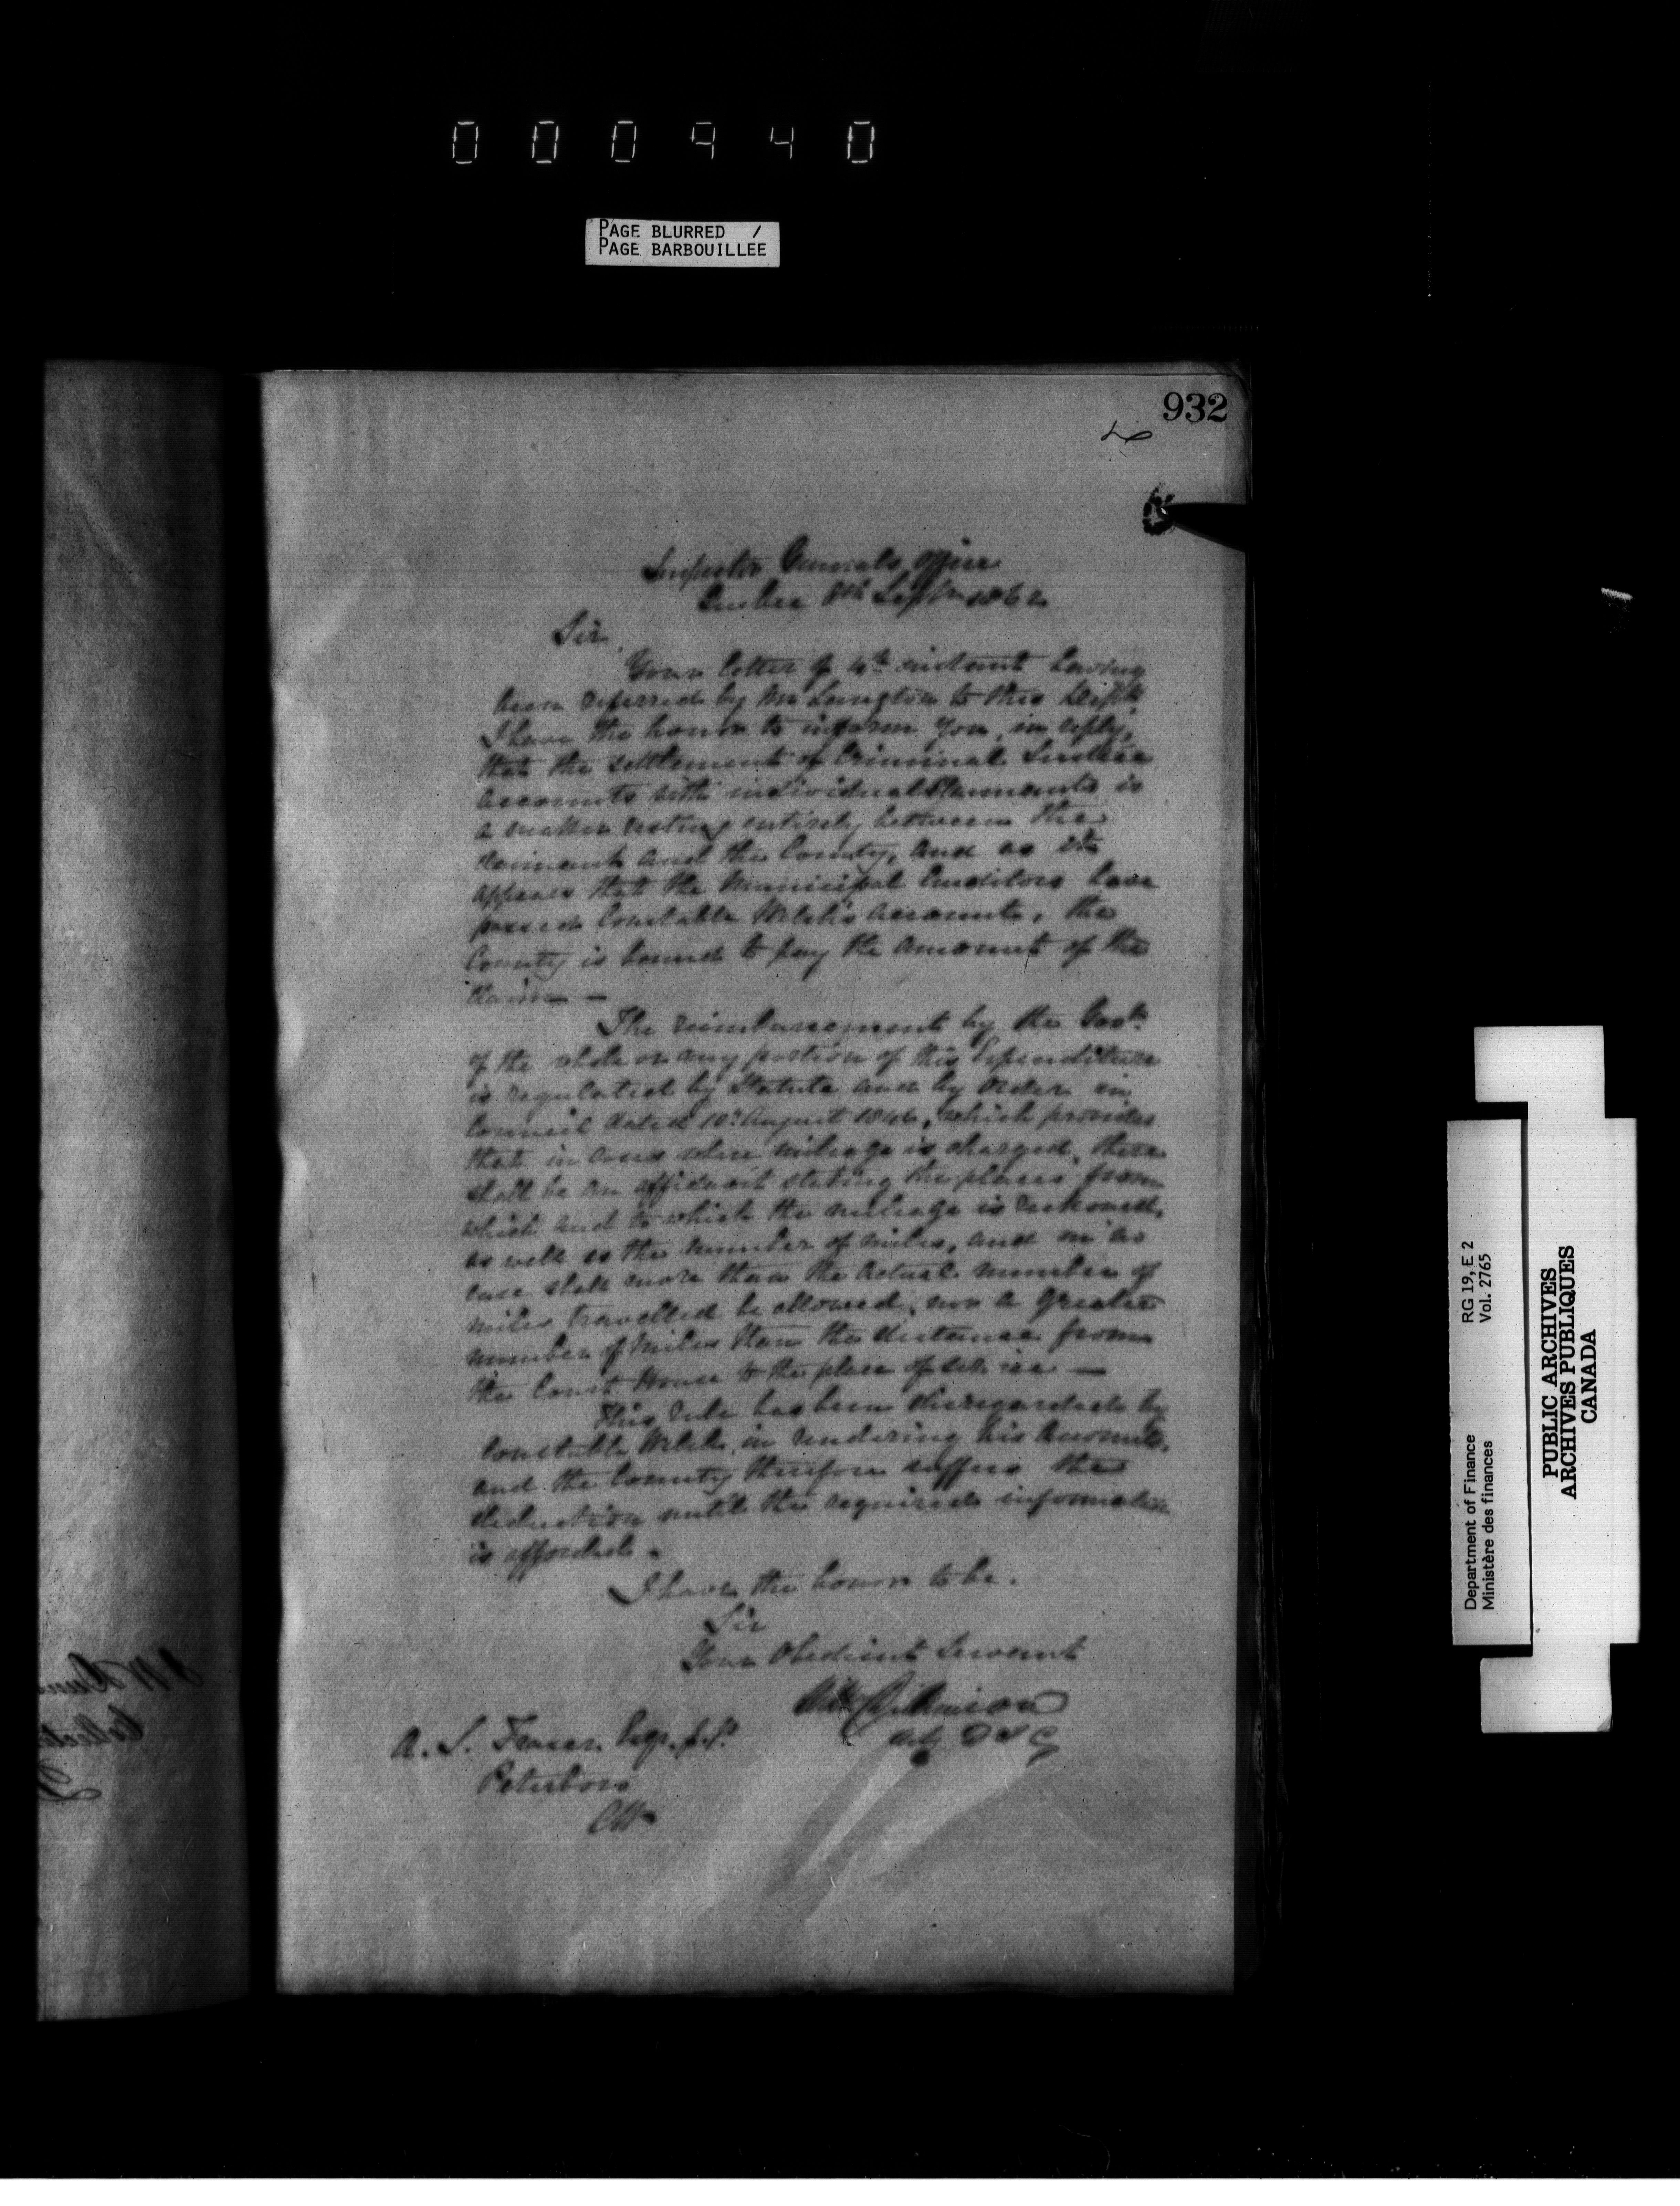 000940
PAGE BLURRED /
PAGE BARBOUILLEE
932
Inspector Generals Office
Quebec 8th Septr 1862
Sir,
Your letter of 4th instant having
been referred by Mr Langton to this Deptt.
I have the honor to inform you, in reply,
that the settlement of Criminal Justice
accounts with individual Claimants is
a matter resting entirely between the
claimant and the County, and as it
appears that the Municipal Auditors have
passed Constable Welch's accounts, the
County is bound to pay the amount of the
claim —
The reimbursement by the Govt.
of the whole or any portion of this Expenditure
is regulated by Statute and by Order in
Council dated 10th August 1846, which provides
that in cases where mileage is charged, there
shall be an affidavit stating the places from
which and to which the mileage is reckoned,
as well as the number of miles, and in no
case shall more than the actual number of
miles travelled be allowed, nor a greater
number of miles than the distance from
the Court House to the place of service —
This rule has been disregarded by
Constable Welch in rendering his Accounts,
and the County therefore suffers the
deduction until the required information
is afforded.
I have the honor to be.
Sir
Your Obedient Servant
Dickinson
D I G
A. S. Fraser Esqr.
Peterboro
CW
RG 19, E 2
Vol. 2765
Department of Finance
Ministère des finances
PUBLIC ARCHIVES
ARCHIVES PUBLIQUES
CANADA